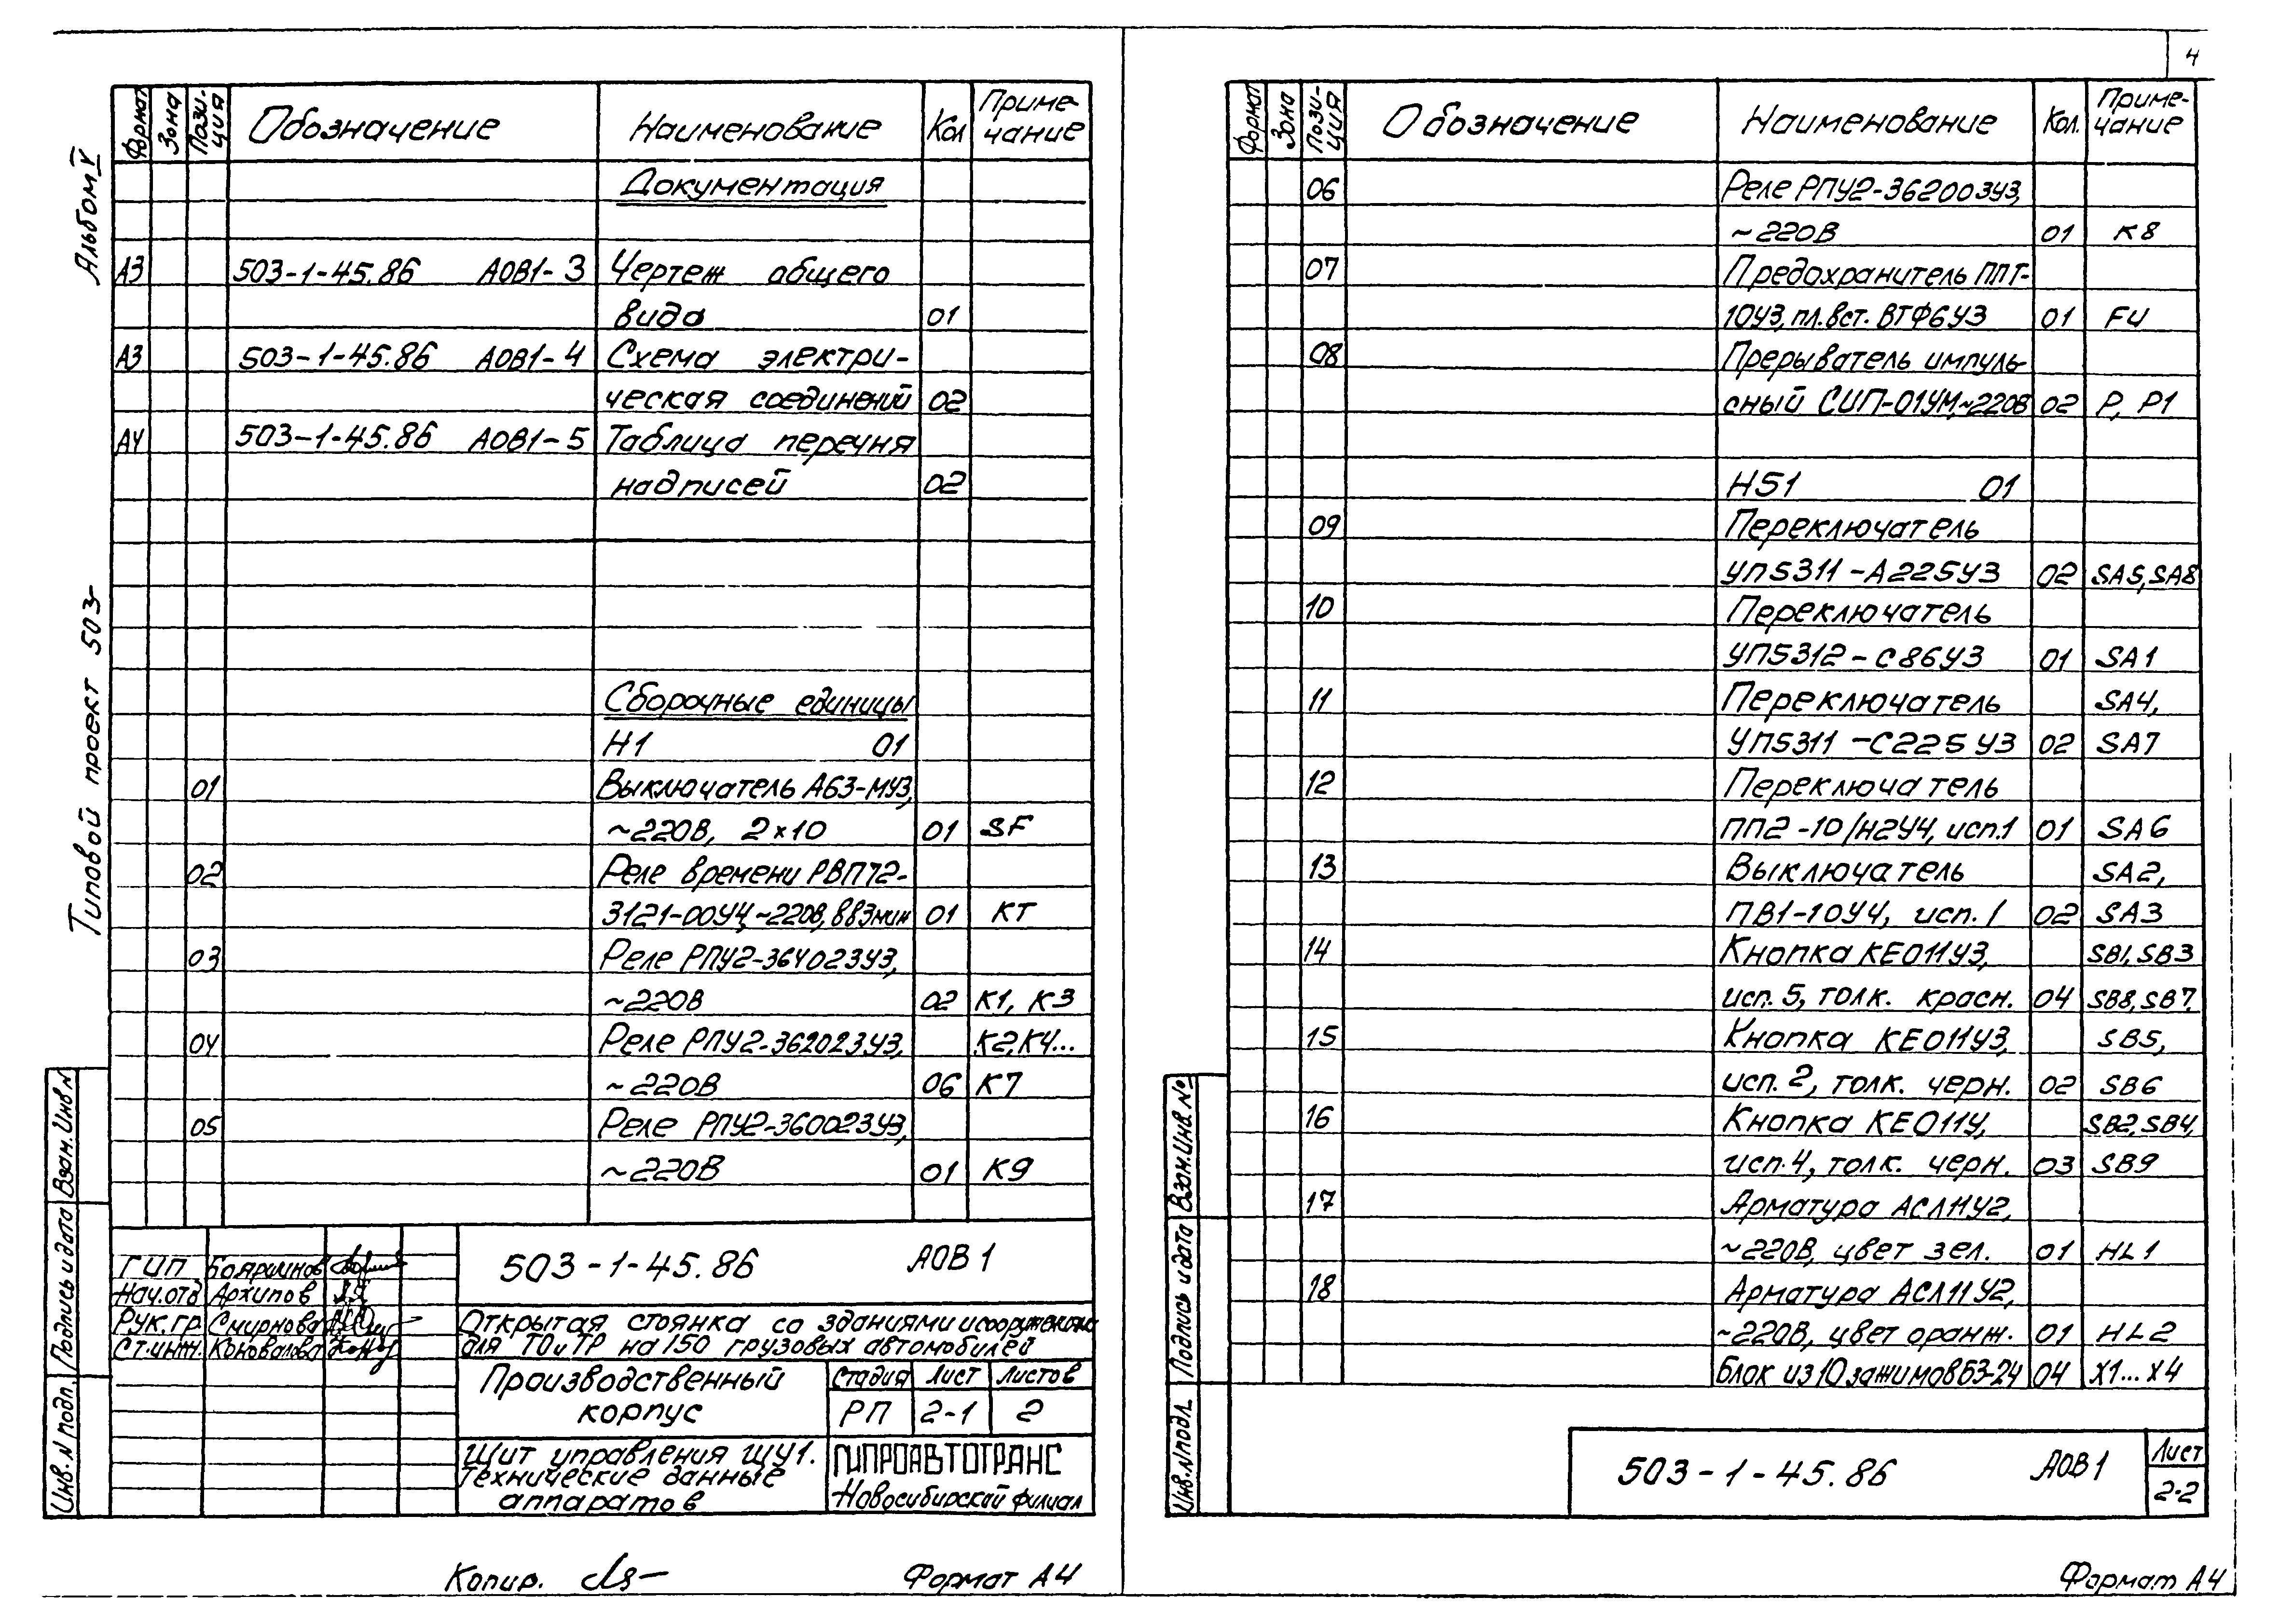 4
Альбом V
Типовой проект 503-
Формат Зона Пози-ция Обозначение Наименование Кол Приме-чание
Документация
А3 503-1-45.86 АОВ1-3 Чертеж общего
вида 01
А3 503-1-45.86 АОВ1-4 Схема электри-
ческая соединений 02
А4 503-1-45.86 АОВ1-5 Таблица перечня
надписей 02
Сборочные единицы
Н1 01
01 Выключатель А63-МУ3,
~220В, 2×10 01 SF
02 Реле времени РВП72-
3121-00У4,~220В, ВВ3мин 01 КТ
03 Реле РПУ2-364023У3,
~220В 02 К1, К3
04 Реле РПУ2-362023У3, К2,К4...
~220В 06 К7
05 Реле РПУ2-360023У3,
~220В 01 К9
Взам.Инв.N
Подпись и дата
Инв.N подл.
503-1-45.86 АОВ1
ГИП Бояршинов
Нач.отд Архипов
Рук.гр. Смирнова
Ст.инж. Коновалова
Открытая стоянка со зданиями и сооружениями
для ТО и ТР на 150 грузовых автомобилей
Производственный
корпус
Стадия Лист Листов
РП 2-1 2
Щит управления ЩУ1.
Технические данные
аппаратов
ГИПРОАВТОТРАНС
Новосибирский филиал
Копир.
Формат А4
Формат Зона Пози-ция Обозначение Наименование Кол. Приме-чание
06 Реле РПУ2-362003У3,
~220В 01 К8
07 Предохранитель ППТ-
10У3, пл.вст. ВТФ6У3 01 F4
08 Прерыватель импуль-
сный СИП-01УМ,~220В 02 Р, Р1
Н51 01
09 Переключатель
УП5311-А225У3 02 SA5,SA8
10 Переключатель
УП5312-С86У3 01 SA1
11 Переключатель SA4,
УП5311-С225У3 02 SA7
12 Переключатель
ПП2-10/Н2У4, исп.1 01 SA6
13 Выключатель SA2,
ПВ1-10У4, исп.1 02 SA3
14 Кнопка КЕ011У3, SB1,SB3
исп.5, толк. красн. 04 SB8,SB7,
15 Кнопка КЕ011У3, SB5,
исп.2, толк. черн. 02 SB6
16 Кнопка КЕ011У, SB2,SB4,
исп.4, толк. черн. 03 SB9
17 Арматура АСЛ11У2,
~220В, цвет зел. 01 HL1
18 Арматура АСЛ11У2,
~220В, цвет оранж. 01 HL2
Блок из 10 зажимов БЗ-24 04 Х1...Х4
Взам.Инв.№
Подпись и дата
Инв.N подл.
503-1-45.86 АОВ1
Лист
2-2
Формат А4